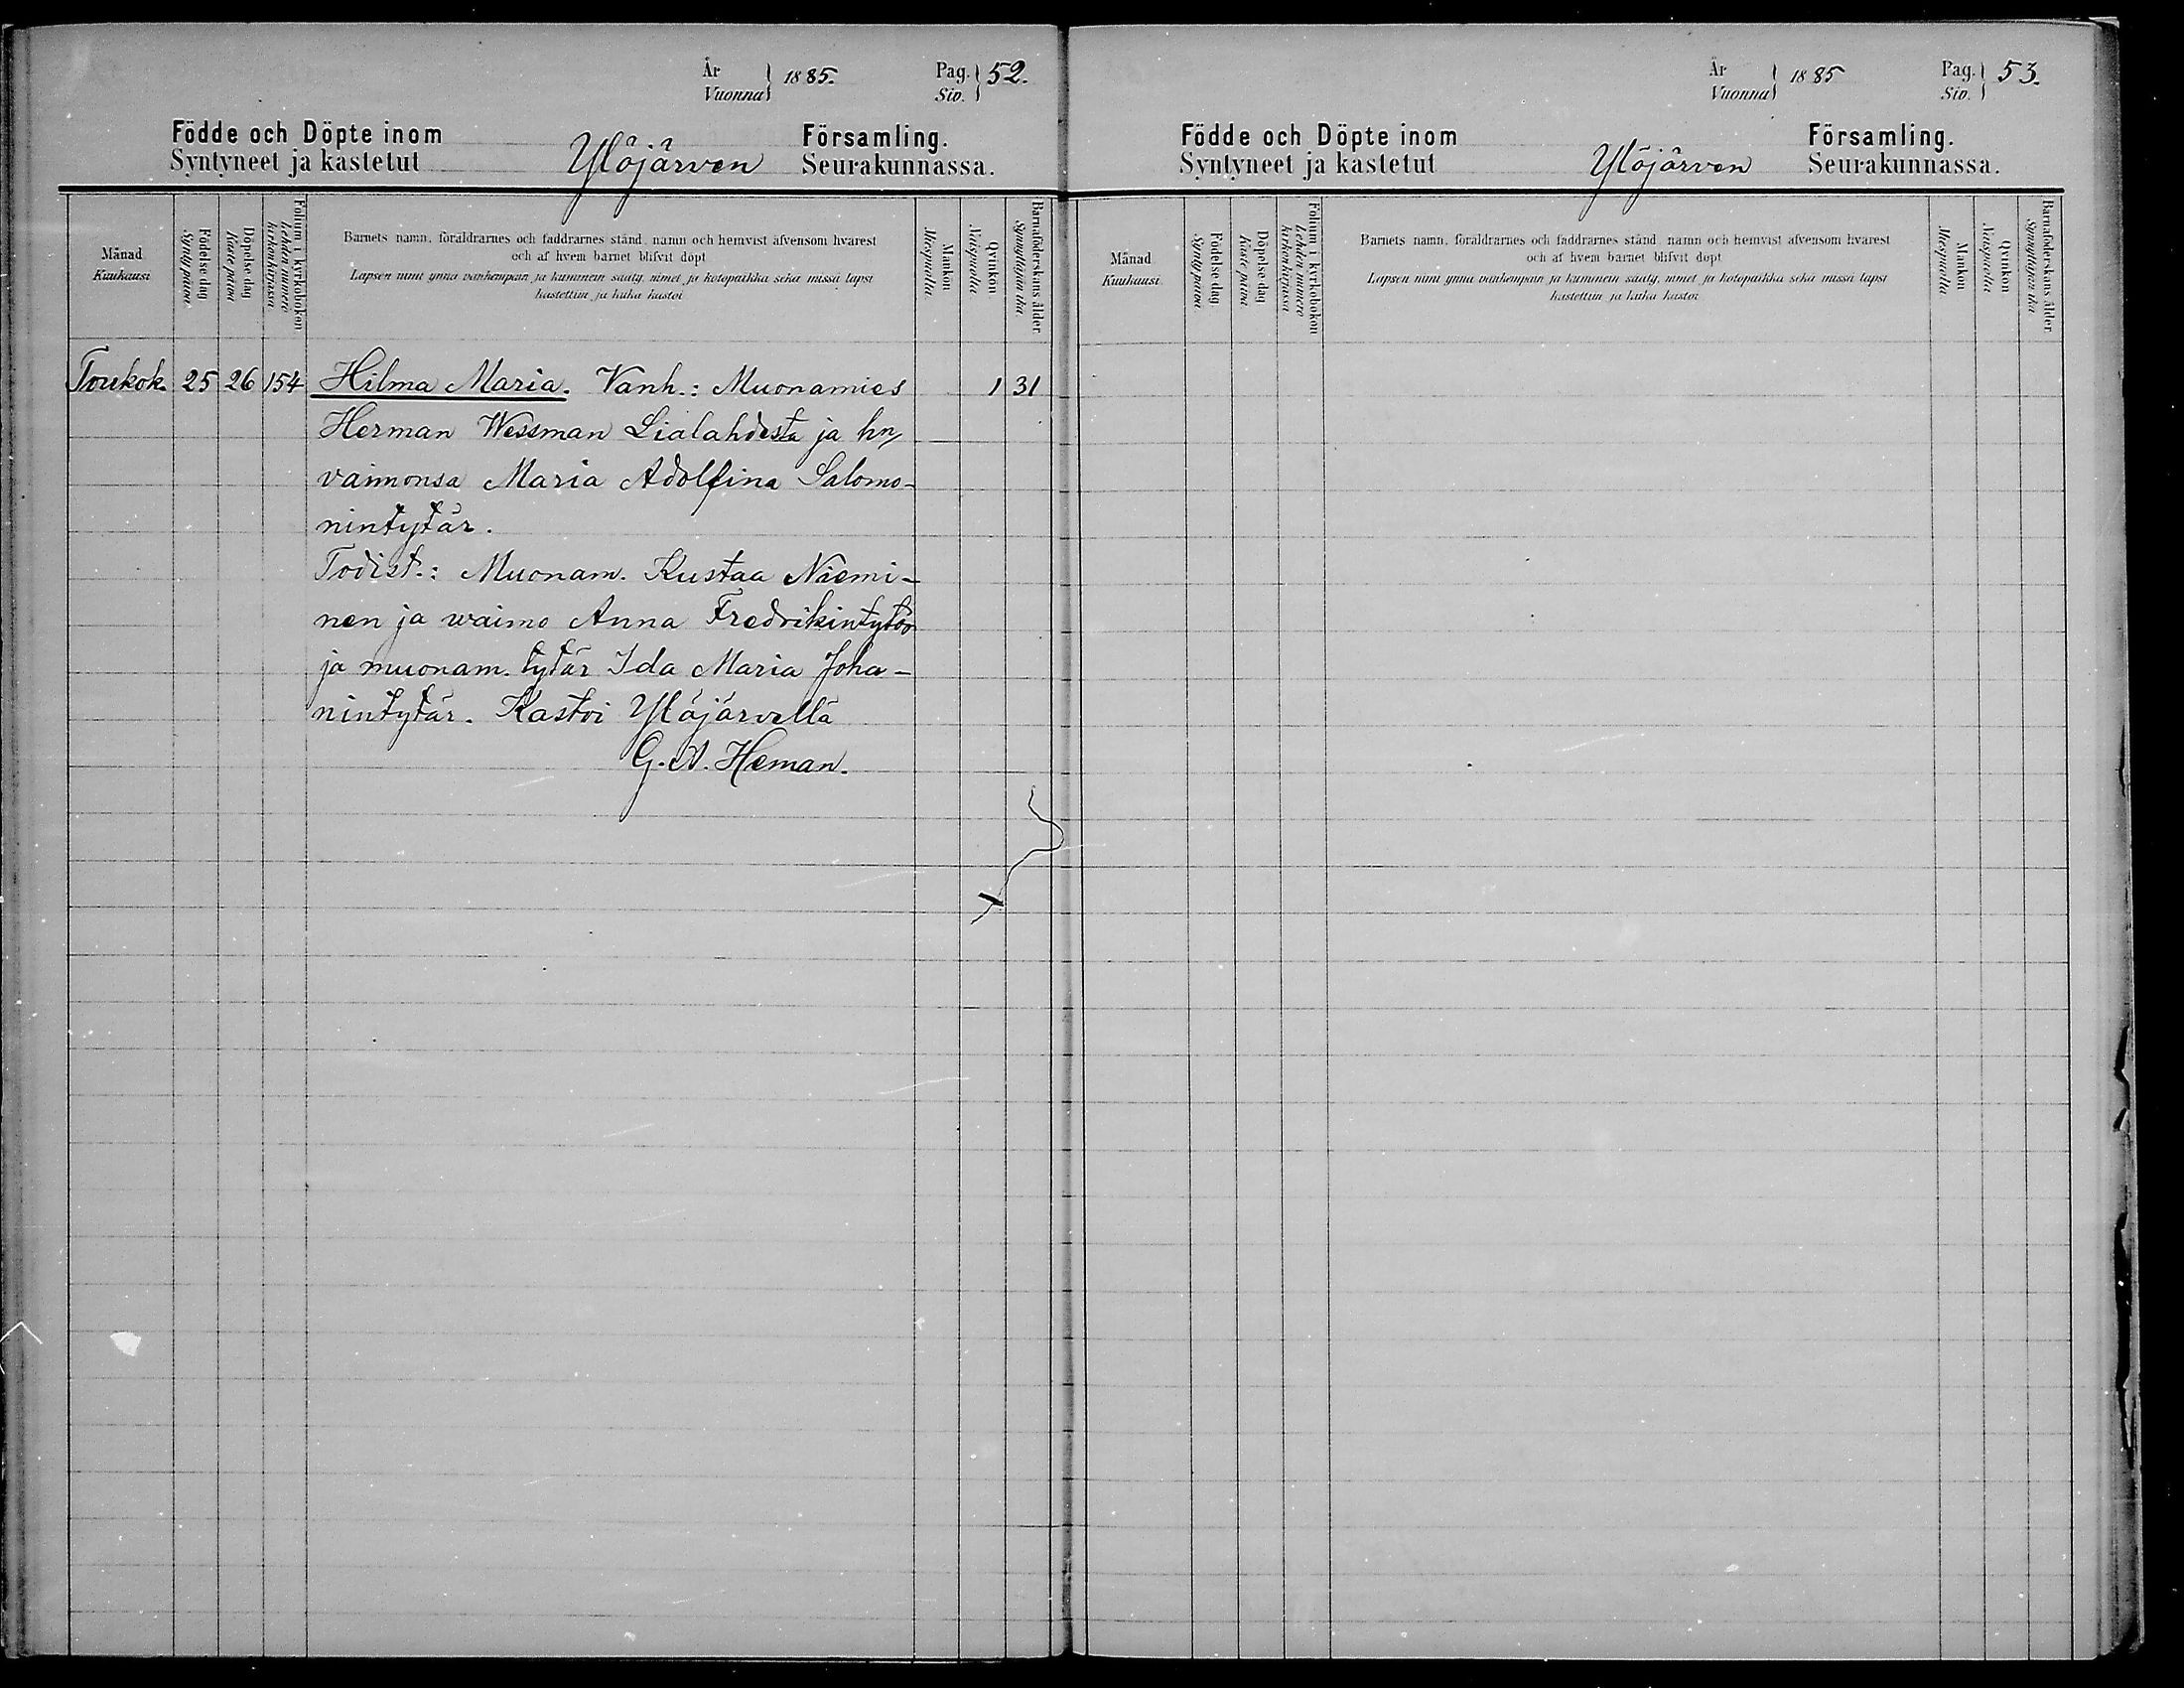 År
Vuonna 1885. Pag. Siv. 52.
Födde och Döpte inom Församling.
Syntyneet ja kastetut Ylöjärven Seurakunnassa.
Månad
Kuukausi
Födelse dag
Synty päivä
Döpelse dag
Kaste päivä
Folium i kyrkoboken
Lehden numero
kirkonkirjassa
Barnets namn, föräldrarnes och faddrarnes stånd, namn och hemvist äfvensom hvarest
och af hvem barnet blifvit döpt
Lapsen nimi ynnä vanhempain ja kummein sääty, nimet ja kotopaikka sekä missä lapsi
kastettiin ja kuka kastoi
Mankön
Miespuolia
Qvinkön
Naispuolia
Barnaföderskans ålder
Synnyttäjän ikä
Toukok. 25 26 154 Hilma Maria. Vanh.: Muonamies 1 31
Herman Wessman Lialahdesta ja hn,
vaimonsa Maria Adolfina Salomo-
nintytär.
Todist.: Muonam. Kustaa Niemi-
nen ja waimo Anna Fredrikintytär
ja muonam. tytär Ida Maria Joha-
nintytär. Kastoi Ylöjärvellä
G. A. Heman.
År
Vuonna 1885 Pag. Siv. 53.
Födde och Döpte inom Församling.
Syntyneet ja kastetut Ylöjärven Seurakunnassa.
Månad
Kuukausi
Födelse dag
Synty päivä
Döpelse dag
Kaste päivä
Folium i kyrkoboken
Lehden numero
kirkonkirjassa
Barnets namn, föräldrarnes och faddrarnes stånd, namn och hemvist äfvensom hvarest
och af hvem barnet blifvit döpt
Lapsen nimi ynnä vanhempain ja kummein sääty, nimet ja kotopaikka sekä missä lapsi
kastettiin ja kuka kastoi
Mankön
Miespuolia
Qvinkön
Naispuolia
Barnaföderskans ålder
Synnyttäjän ikä